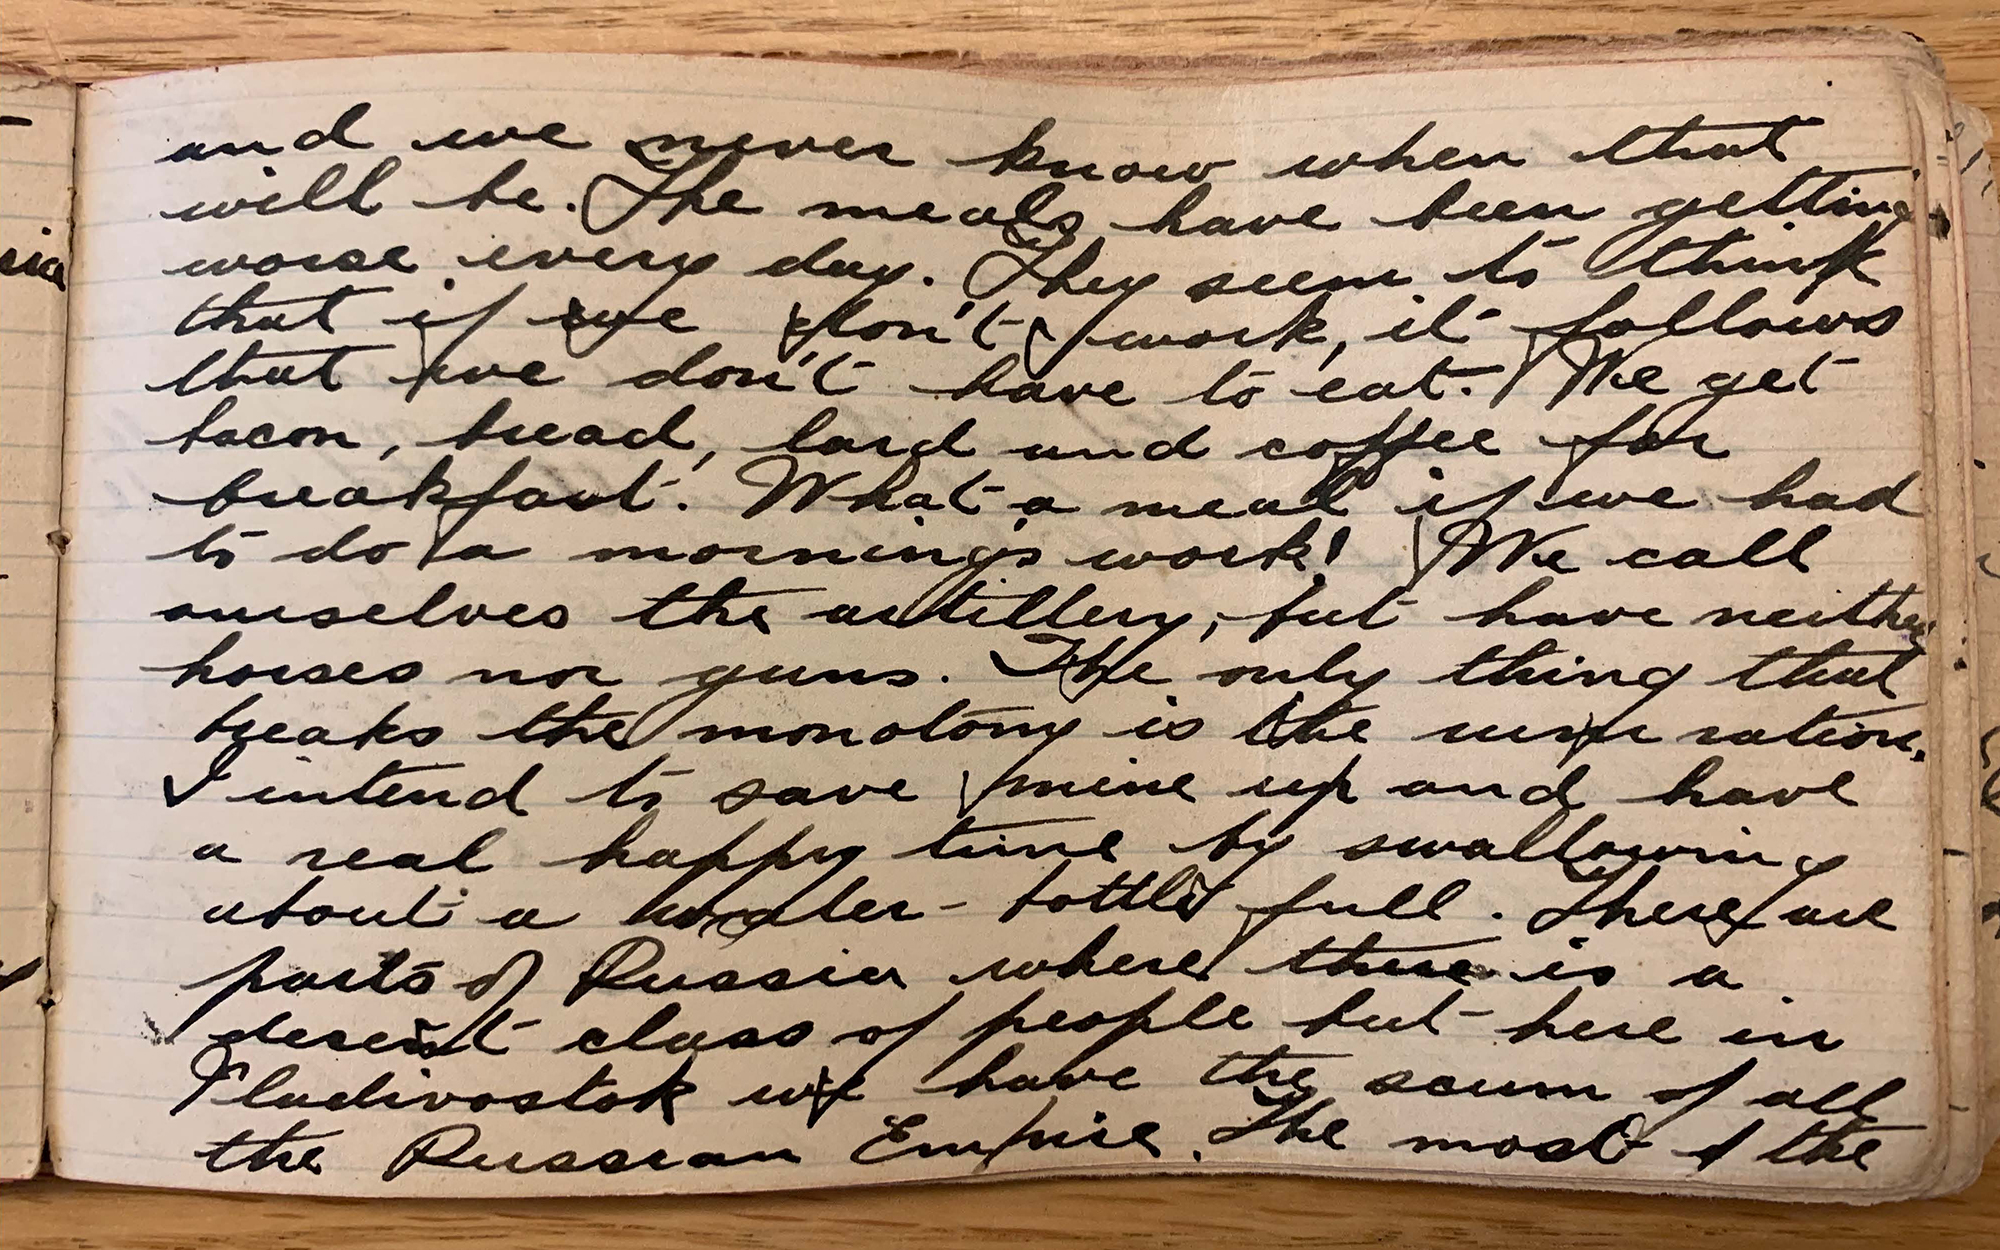 and we never know when that
will be. The meals have been getting
worse every day. They seem to think
that if we don't work, it follows
that we don't have to eat. We get
bacon, bread, lard and coffee for
breakfast. What a meal if we had
to do a morning's work! We call
ourselves the artillery, but have neither
horses nor guns. The only thing that
breaks the monotony is the rum ration.
I intend to save mine up and have
a real happy time by swallowing
about a water-bottle full. There are
parts of Russia where there is a
descent class of people but here in
Vladivostok we have the scum of all
the Russian Empire. The most of the